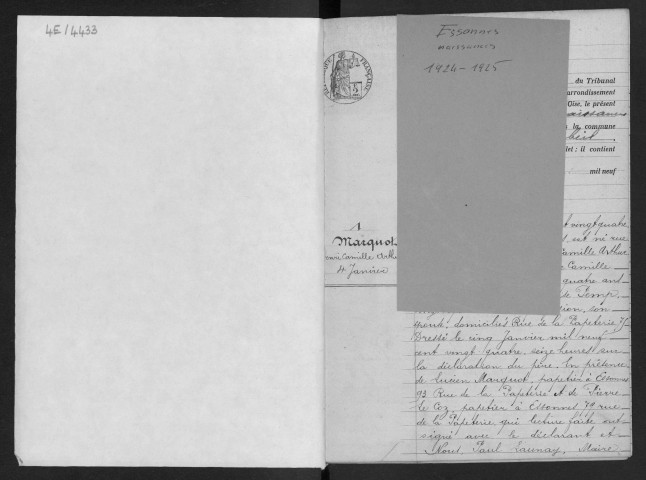 4E/4433
Essonnes
naissances
1924-1925
du Tribunal
arrondissement
Oise, le présent
naissances
la commune
let : il contient
mil neuf
1
Marquot
Henri Camille Arthur
4 Janvier
vingt quatre
est né rue
Camille Arthur
Camille
quatre ans
de Temp.
son
domiciliés Rue de la Papeterie 75
Dressé le cinq Janvier mil neuf
cent vingt quatre, seize heures sur
la déclaration du père. En présence
de Lucien Marquot, papetier à Essonnes
93 Rue de la Papeterie et de Pierre
Le Coz, papetier à Essonnes 79 rue
de la Papeterie, qui lecture faite ont
signé avec le déclarant et
Nous, Paul Launay, Maire